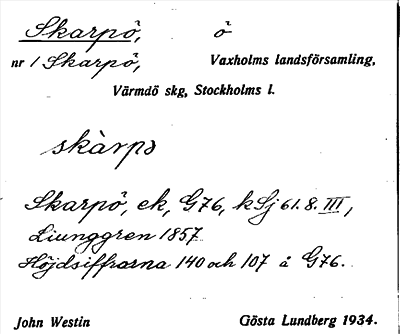 Skarpö, ö
nr 1 Skarpö, Vaxholms landsförsamling,
Värmdö skg, Stockholms l.
skàrpə
Skarpö, ek, G76, kSj 61.8.III,
Liunggren 1857
Höjdsiffrorna 140 och 107 å G76.
John Westin Gösta Lundberg 1934.